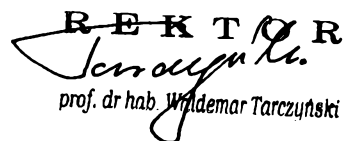 REKTOR
prof. dr hab. Waldemar Tarczyński